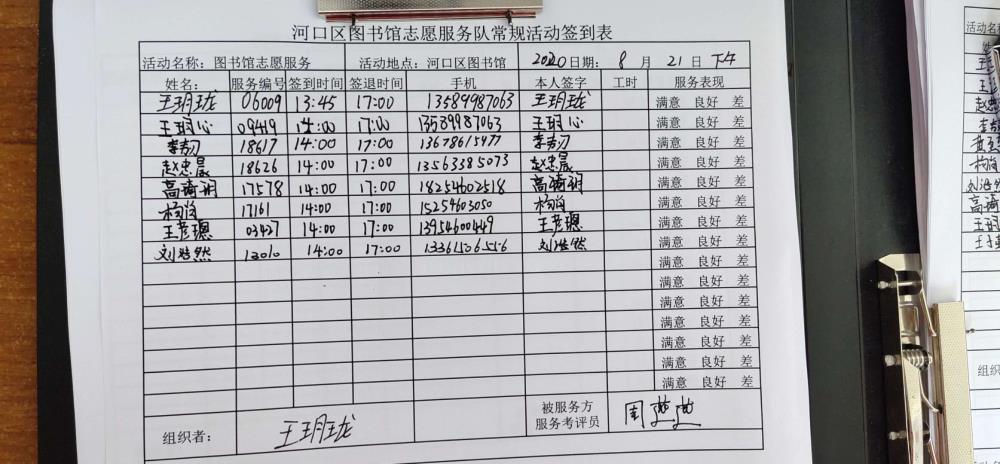 河口区图书馆志愿服务队常规活动签到表
活动名称：图书馆志愿服务 活动地点：河口区图书馆 2020日期： 8 月 21 日 下午
姓名： 服务编号 签到时间 签退时间 手机 本人签字 工时 服务表现
王玥珑 06009 13:45 17:00 13589987063 王玥珑 满意 良好 差
王玥心 09419 14:00 17:00 13589987063 王玥心 满意 良好 差
18617 14:00 17:00 13678615477 满意 良好 差
赵忠晟 18626 14:00 17:00 13563385073 赵忠晟 满意 良好 差
高琦玥 17578 14:00 17:00 18254602518 高琦玥 满意 良好 差
17161 14:00 17:00 15254603050 满意 良好 差
王彦璁 03427 14:00 17:00 13954600449 王彦璁 满意 良好 差
刘浩然 12010 14:00 17:00 13361506556 刘浩然 满意 良好 差
满意 良好 差
满意 良好 差
满意 良好 差
满意 良好 差
满意 良好 差
满意 良好 差
满意 良好 差
组织者： 王玥珑 被服务方 周燕燕
服务考评员